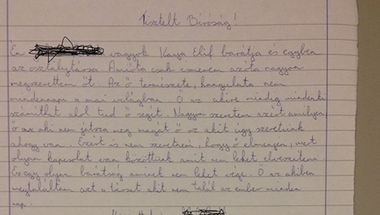 Tisztelt Bíróság!
Én vagyok Kaya Elif barátja és egyben
az osztálytársa. Amióta csak ismerem azóta nagyon
megszerettem őt. Az ő természete, hangulata nem
mindennapi a mai világban. Ő az akire mindig mindenki
számíthat ahol tud ő segít. Nagyon szeretem ezért amilyen,
ő az aki nem játsza meg magát ő az akit úgy szeretünk
ahogy van. Ezért is nem szeretném, hogy elmenjen, mert
olyan kapcsolat van köztünk amit nem lehet elveszíteni.
Ez egy olyan barátság aminek nem lehet vége. Ő az akiben
megtaláltam azt a társat akit nem talál az ember minden
nap.